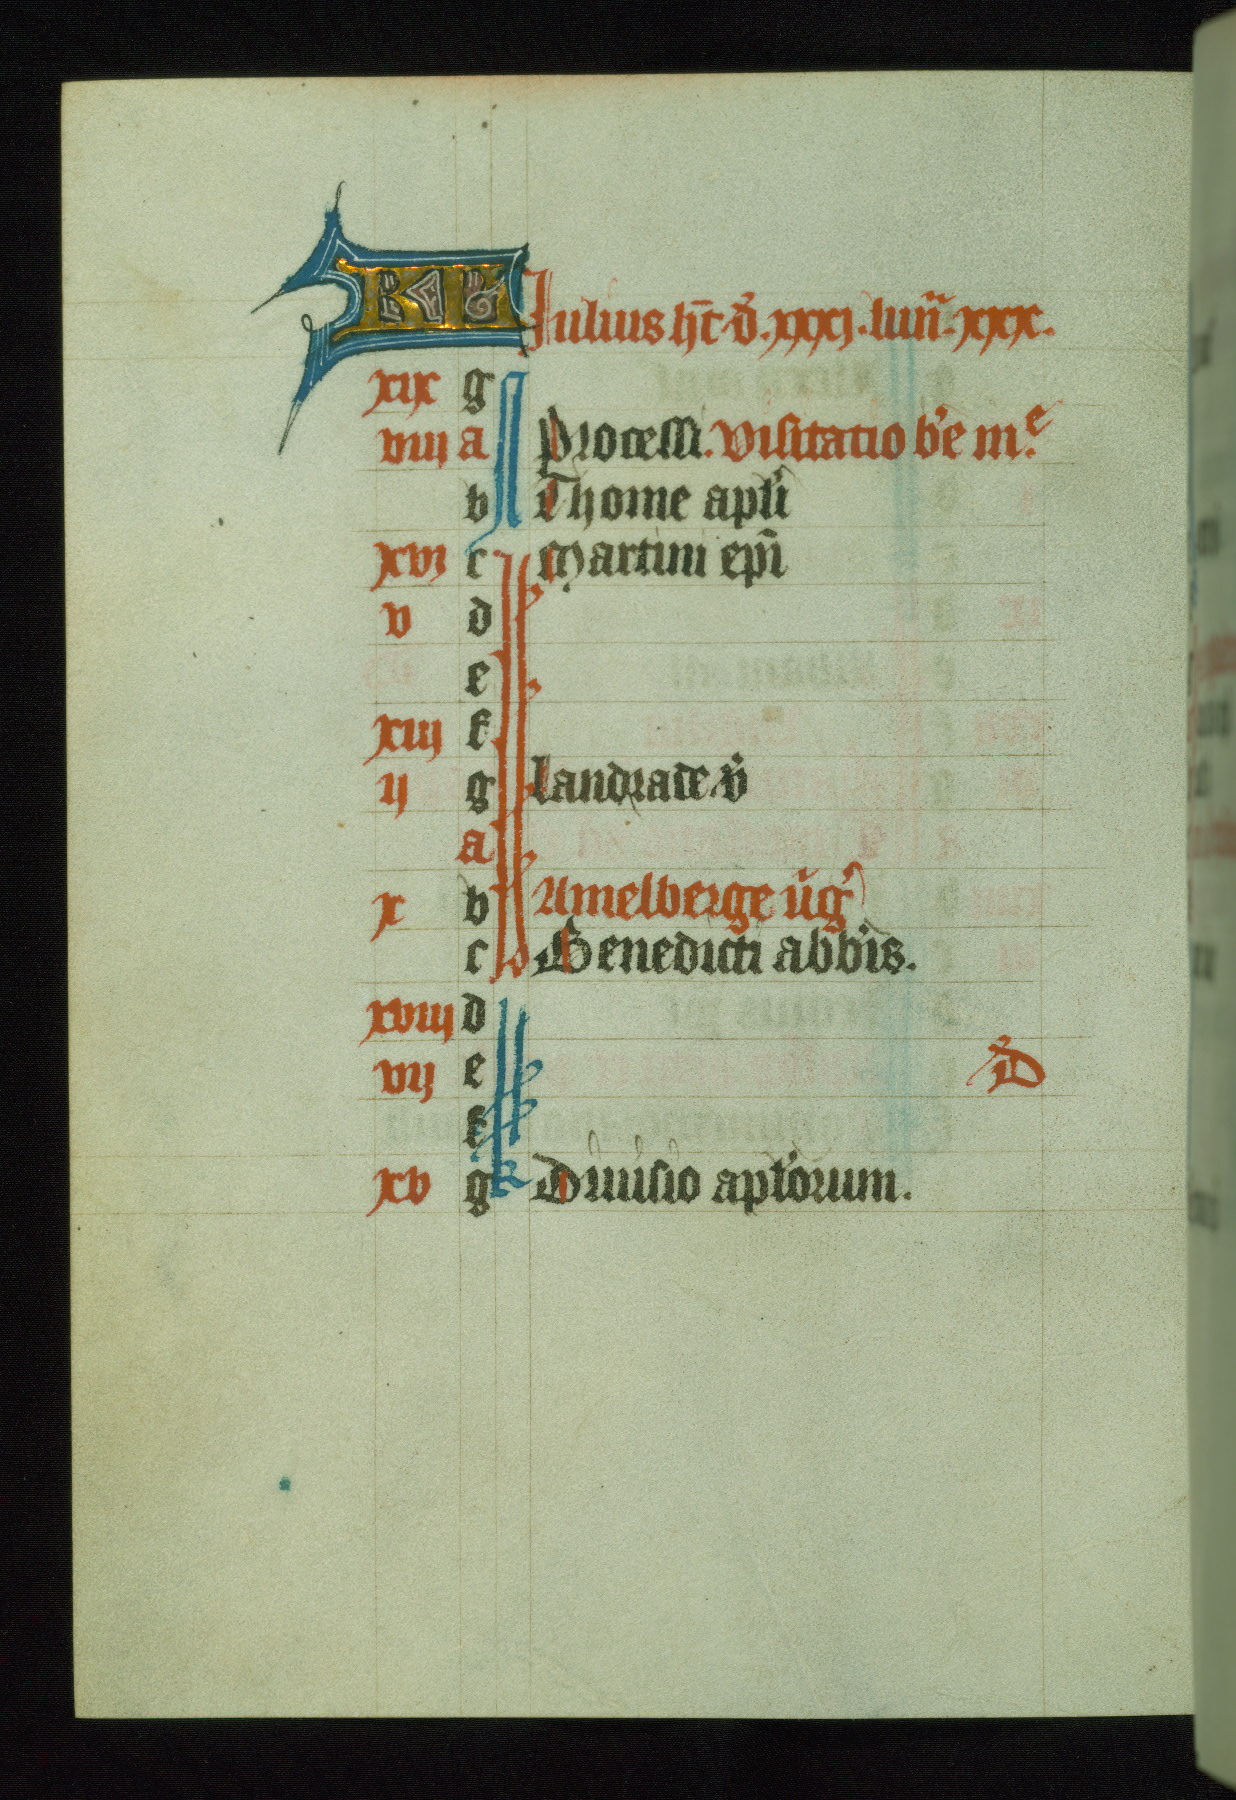 KL Iulius ht̄ d̄. xxxj. luñ. xxx.
xix g
viij a Processi. Visitatio b'e m'e
b Thome apl'i
xvj c Martini ep̄i
v d
e
xiij f
ij g Landrade v̄
a
x b Amelberge v̄g'
c Benedicti abb'is.
xviij d
vij e D
f
xv g Diuisio apl'orum.